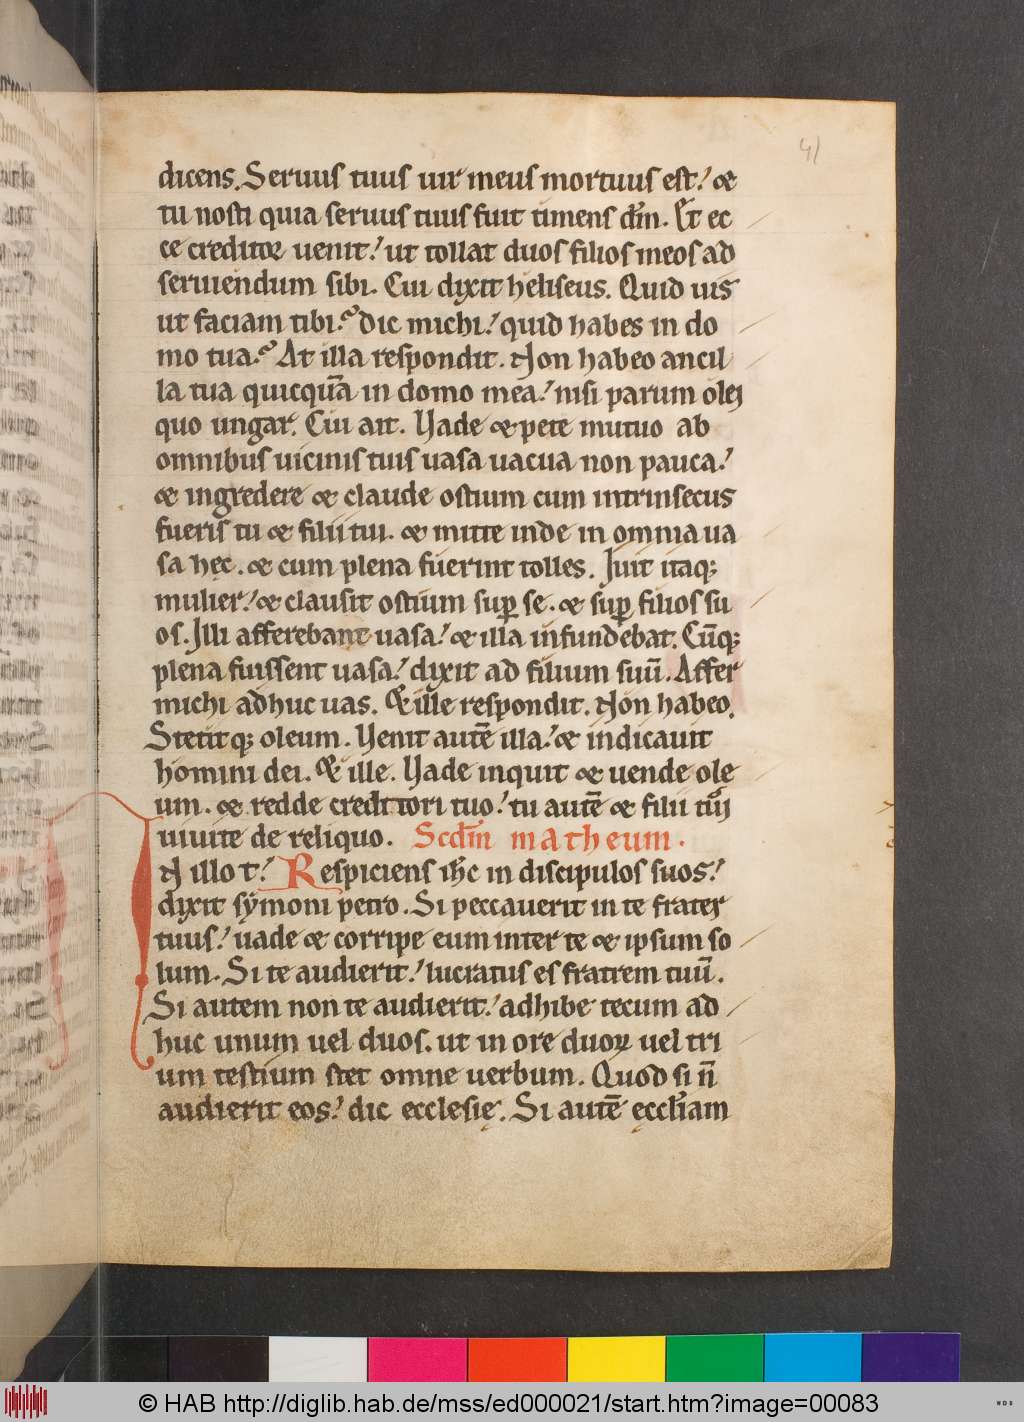 41
dicens. Seruus tuus uir meus mortuus est! &
tu nosti quia seruus tuus fuit timens dn̄m. Et ec
ce creditor uenit! ut tollat duos filios meos ad
seruiendum sibi. Cui dixit heliseus. Quid uis
ut faciam tibi? dic michi! quid habes in do
mo tua? At illa respondit. Non habeo ancil
la tua quicquā in domo mea! nisi parum olei
quo ungar. Cui ait. Vade & pete mutuo ab
omnibus uicinis tuis uasa uacua non pauca!
& ingredere & claude ostium cum intrinsecus
fueris tu & filii tui. & mitte inde in omnia ua
sa hęc. & cum plena fuerint tolles. Iuit itaq;
mulier! & clausit ostium sup̱ se. & sup̱ filios su
os. Illi afferebant uasa! & illa infundebat. Cūq;
plena fuissent uasa! dixit ad filium suū. Affer
michi adhuc uas. & ille respondit. Non habeo.
Stetitq; oleum. Venit autē illa! & indicauit
homini dei. & ille. Vade inquit & uende ole
um. & redde creditori tuo! tu autē & filii tui
uiuite de reliquo. Scdm̄ matheum.
IN illo t! Respiciens ih̄c in discipulos suos!
dixit symoni petro. Si peccauerit in te frater
tuus! uade & corripe eum inter te & ipsum so
lum. Si te audierit! lucratus es fratrem tuū.
Si autem non te audierit! adhibe tecum ad
huc unum uel duos. ut in ore duoꝝ uel tri
um testium stet omne uerbum. Quod si n̄
audierit eos! dic ecclesię. Si autē ęccl̄iam
© HAB http://diglib.hab.de/mss/ed000021/start.htm?image=00083